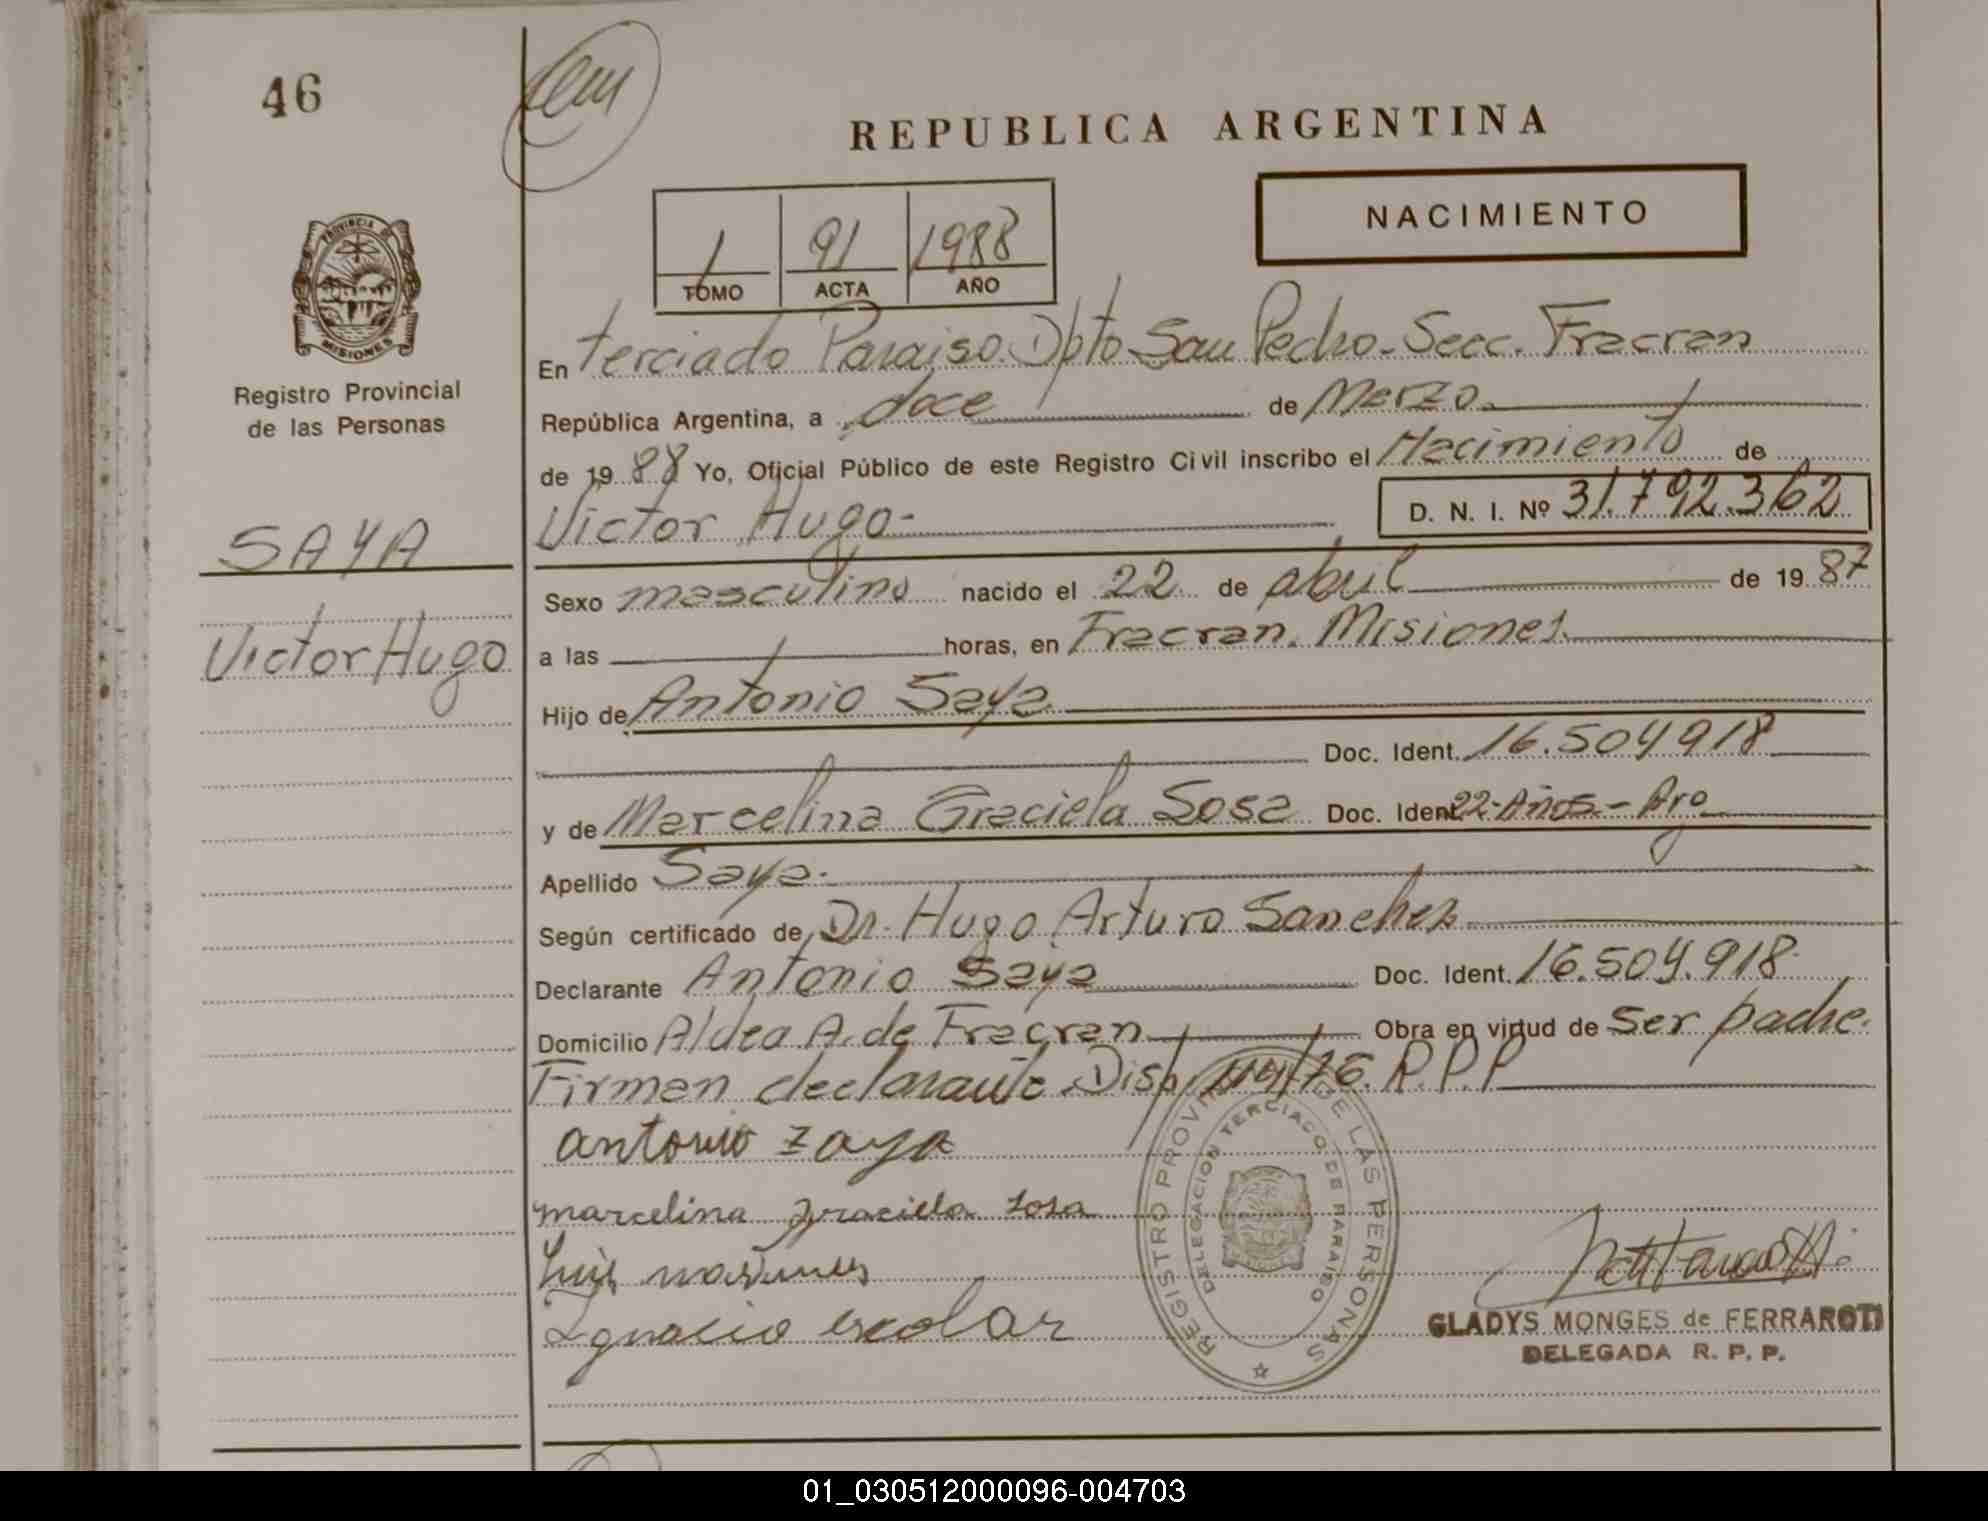 46
REPUBLICA ARGENTINA
NACIMIENTO
1 91 1988
TOMO ACTA AÑO
PROVINCIA
MISIONES
Registro Provincial
de las Personas
SAYA
Victor Hugo
En terciado Paraiso Dpto San Pedro - Secc. Fracran
República Argentina, a doce de Marzo
de 1988 Yo, Oficial Público de este Registro Civil inscribo el Nacimiento de
Victor Hugo- D. N. I. Nº 31.792.362
Sexo masculino nacido el 22 de abril de 1987
a las horas, en Fracran. Misiones.
Hijo de Antonio Saya
Doc. Ident. 16.504918
y de Marcelina Graciela Sosa Doc. Ident 22-Años.- Arg
Apellido Saya.
Según certificado de Dr. Hugo Arturo Sanchez
Declarante Antonio Saya Doc. Ident. 16.504.918
Domicilio Aldea A. de Fracran Obra en virtud de ser padre.
Firman declarante Disp. /76. R.P.P
antonio zaya
marcelina graciela sosa
Luis
Ignacio escolar
REGISTRO PROVINCIAL DE LAS PERSONAS
DELEGACION TERCIADO DE PARAISO
GLADYS MONGES de FERRAROTI
DELEGADA R. P. P.
01_030512000096-004703